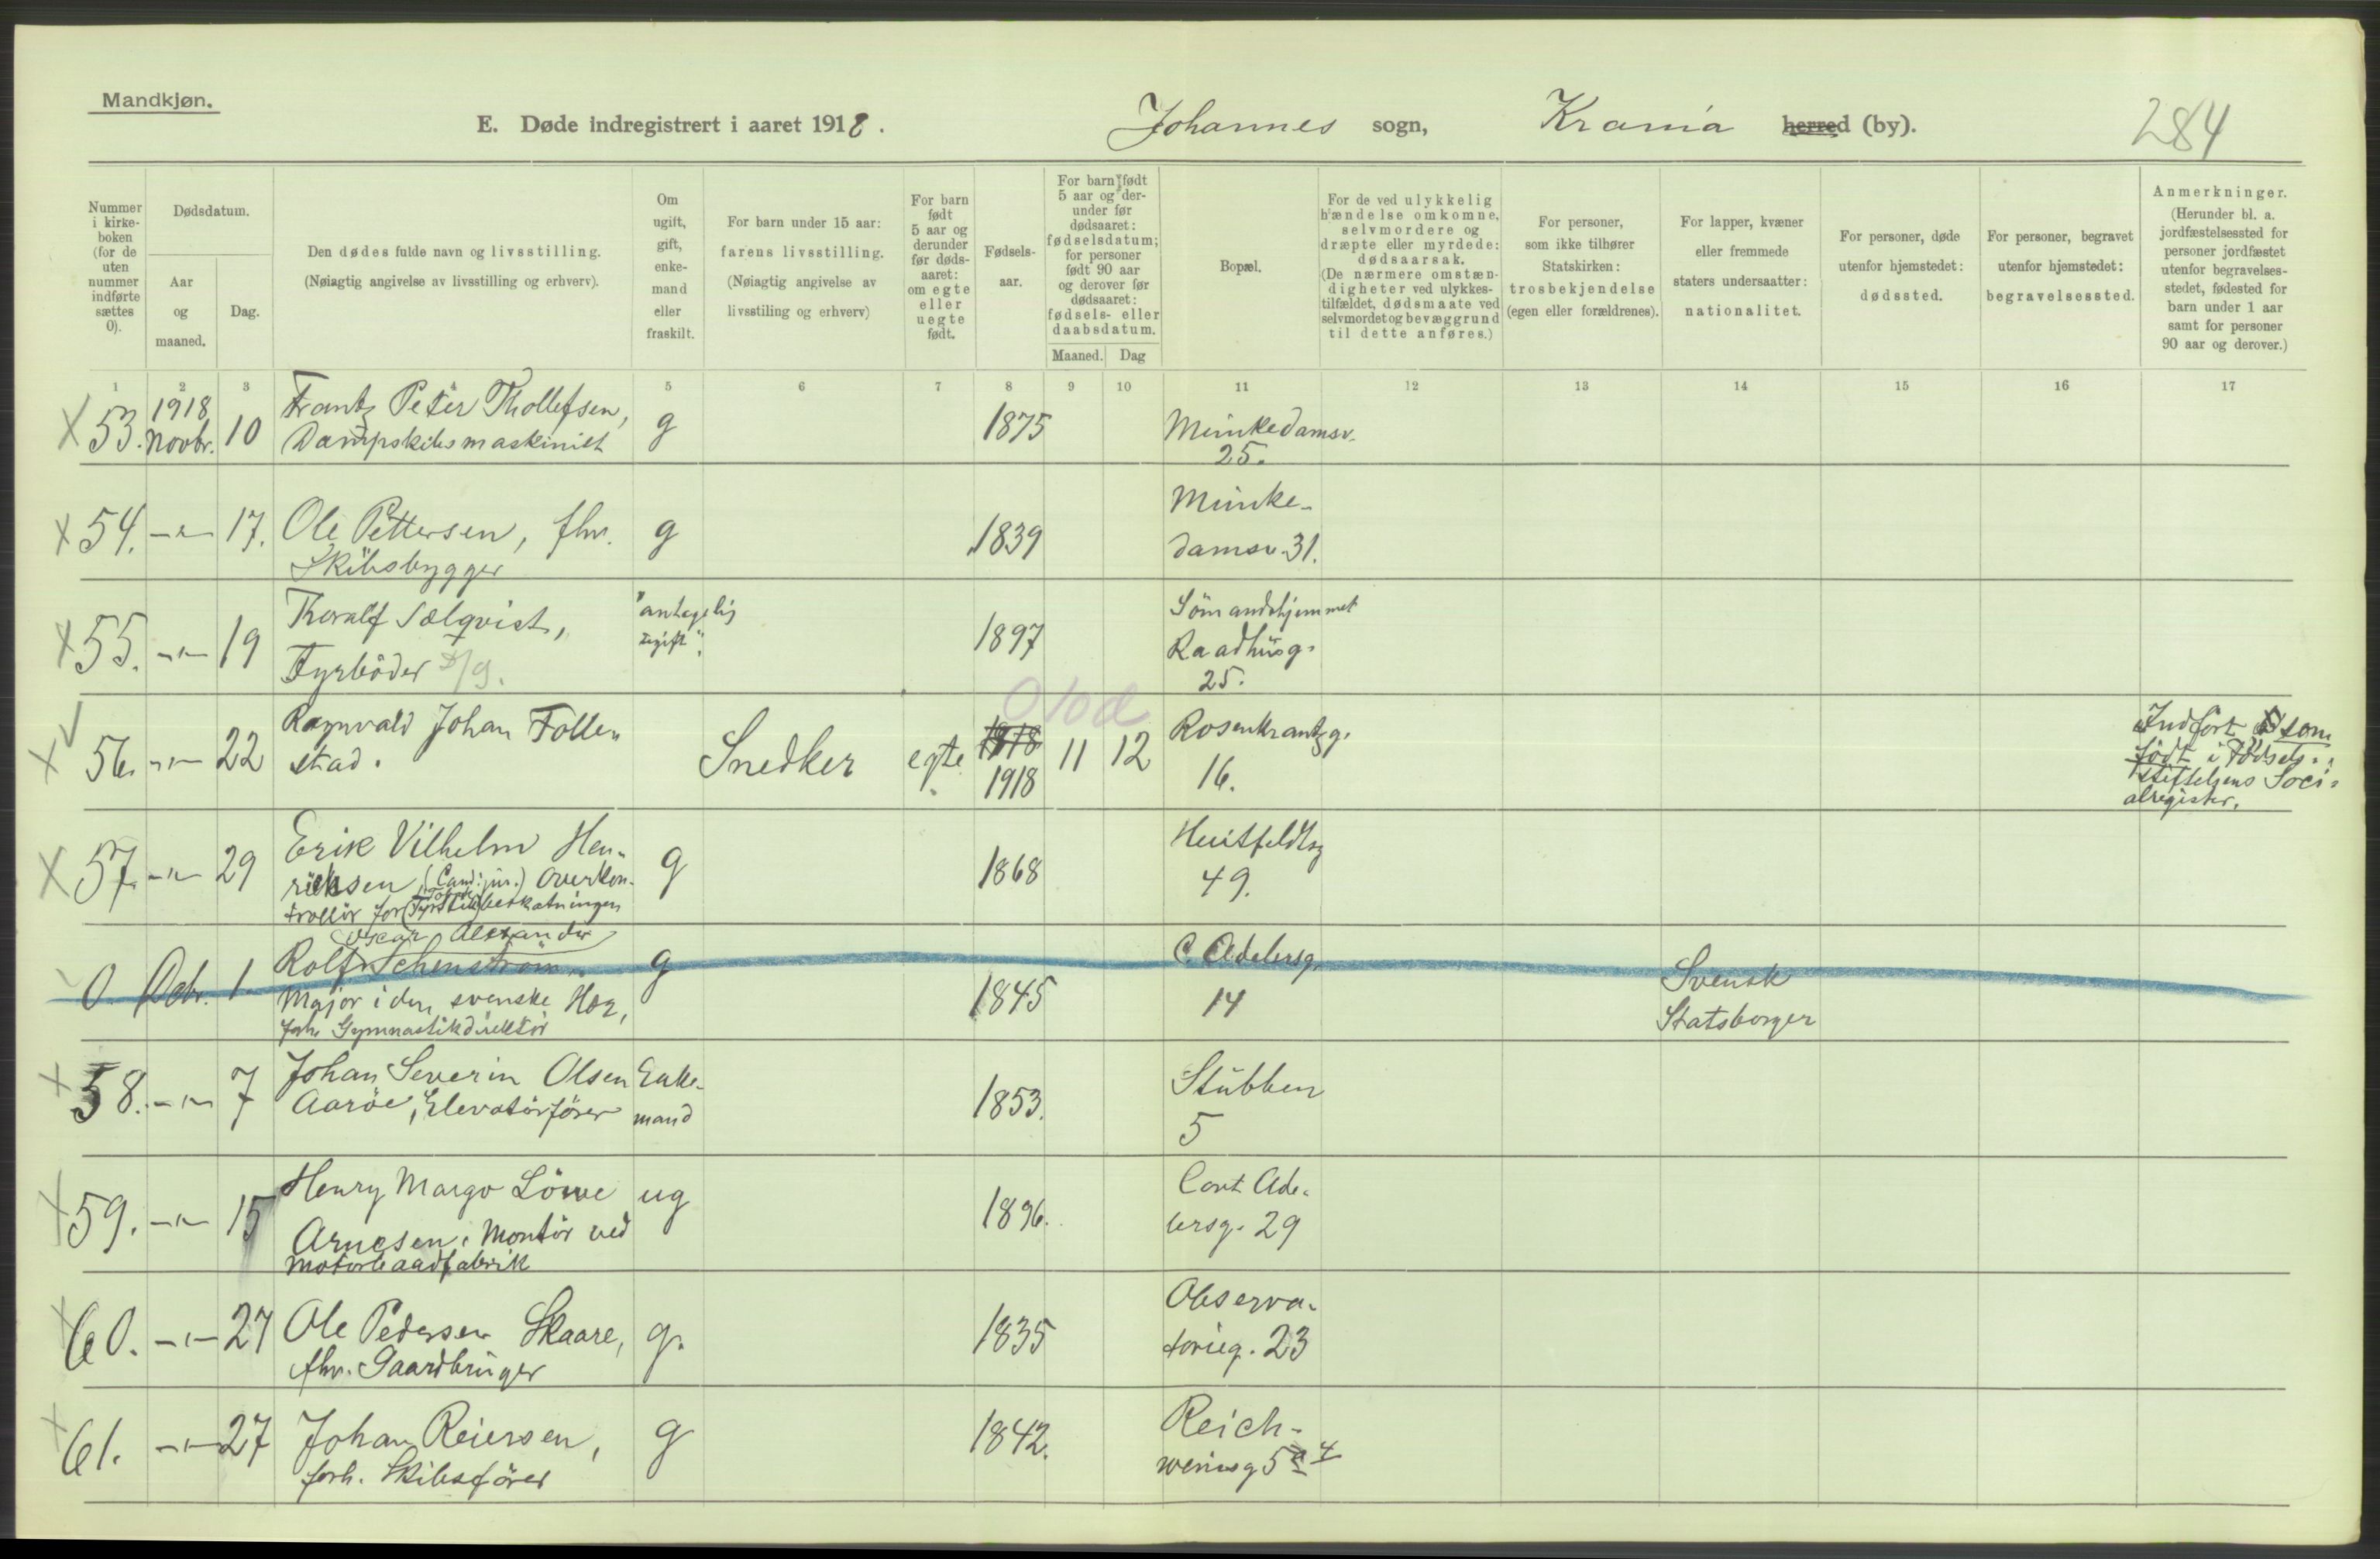 Mandkjøn.
E. Døde indregistrert i aaret 1918. Johannes sogn, Krania herred (by). 284
Nummer i kirke-boken (for de uten nummer indførte sættes 0).
Dødsdatum.
Aar og maaned.
Dag.
Den dødes fulde navn og livsstilling.
(Nøiagtig angivelse av livsstilling og erhverv).
Om ugift, gift, enke-mand eller fraskilt.
For barn under 15 aar: farens livsstilling.
(Nøiagtig angivelse av livsstiling og erhverv)
For barn født 5 aar og derunder før døds-aaret: om egte eller uegte født.
Fødsels-aar.
For barn født 5 aar og der-under før dødsaaret: fødselsdatum; for personer født 90 aar og derover før dødsaaret: fødsels- eller daabsdatum.
Maaned. Dag
Bopæl.
For de ved ulykkelig hændelse omkomne, selvmordere og dræpte eller myrdede: dødsaarsak.
(De nærmere omstæn-digheter ved ulykkes-tilfældet, dødsmaate ved selvmordet og bevæggrund til dette anføres.)
For personer, som ikke tilhører Statskirken: trosbekjendelse (egen eller forældrenes).
For lapper, kvæner eller fremmede staters undersaatter: nationalitet.
For personer, døde utenfor hjemstedet: dødssted.
For personer, begravet utenfor hjemstedet: begravelsessted.
Anmerkninger.
(Herunder bl. a. jordfæstelsessted for personer jordfæstet utenfor begravelses-stedet, fødested for barn under 1 aar samt for personer 90 aar og derover.)
1 2 3 5 6 7 8 9 10 11 12 13 14 15 16 17
X 53. 1918 Novbr. 10 Frantz Peter Thollefsen, g 1875 Munkedamsv.
Dampskibsmaskinist 25.
X 54. -"- 17. Ole Pettersen, fhv. g 1839 Munke-
Skibsbygger damsv. 31.
X 55. -"- 19 Thoralf Sælqvist, "antagelig 1897 Sömandshjemmet
Fyrböder ugift". Raadhusg.
25.
X 56. -"- 22 Ragnvald Johan Folle- Snedker egte 1918 11 12 Rosenkrantzg. Indfört som
stad. 1918 16. født i Fødsels-
stiftelsens Soci-
alregister.
X 57. -"- 29 Erik Vilhelm Hen- g 1868 Huitfeldtsg
riksen (Cand. jur.) Overkon- 49.
trollör for beskatningen
Oscar Alexander
0 Decbr. 1 Rolf Schenström g 1845 C. Adelersg. Svensk
Major i den svenske Hær, 14 Statsborger
forh. Gymnastikdirektör
X 58. -"- 7 Johan Severin Olsen Enke- 1853. Stubben
Aaröe, Elevatörförer mand 5
X 59. -"- 15 Henry Margo Löwe ug 1896. Cort Ade-
Arnesen. Montör ved lersg. 29
Motorbaadfabrik
X 60. -"- 27 Ole Pedersen Skaare, g. 1835 Observa-
fhv. Gaardbruger torieg. 23
X 61. -"- 27 Johan Reiersen, g 1842. Reich-
forh. Skibsförer weinsg 5